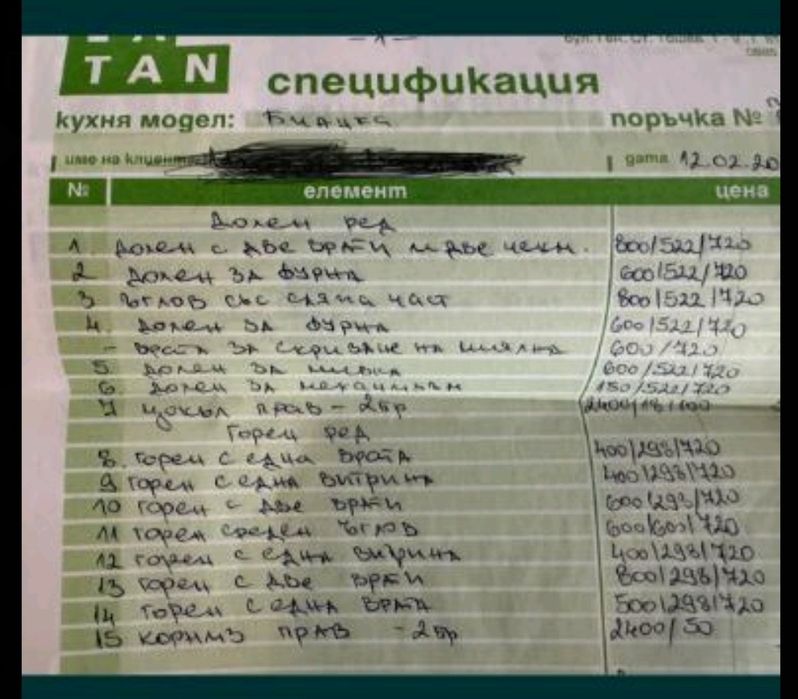 TAN
спецификация
кухня модел: Бианка поръчка №
име на клиента дата 12.02.20
№ елемент цена
Долен ред
1. Долен с две врати и две чекм. 800/522/720
2 Долен за фурна 600/522/720
3 Ъглов със сляпа част 800/522/720
4. Долен за фурна 600/522/720
- врата за скриване на миялна 600/720
5. Долен за мивка 600/522/720
6. Долен за механизъм 150/522/720
7 цокъл прав - 2бр 2400/18/100
Горен ред
8. горен с една врата 400/298/720
9 горен с една витрина 400/298/720
10 горен с две врати 600/298/720
11 горен среден ъглов 600/600/720
12 горен с една витрина 400/298/720
13 горен с две врати 800/298/720
14 горен с една врата 500/298/720
15 корниз прав - 2бр 2400/50